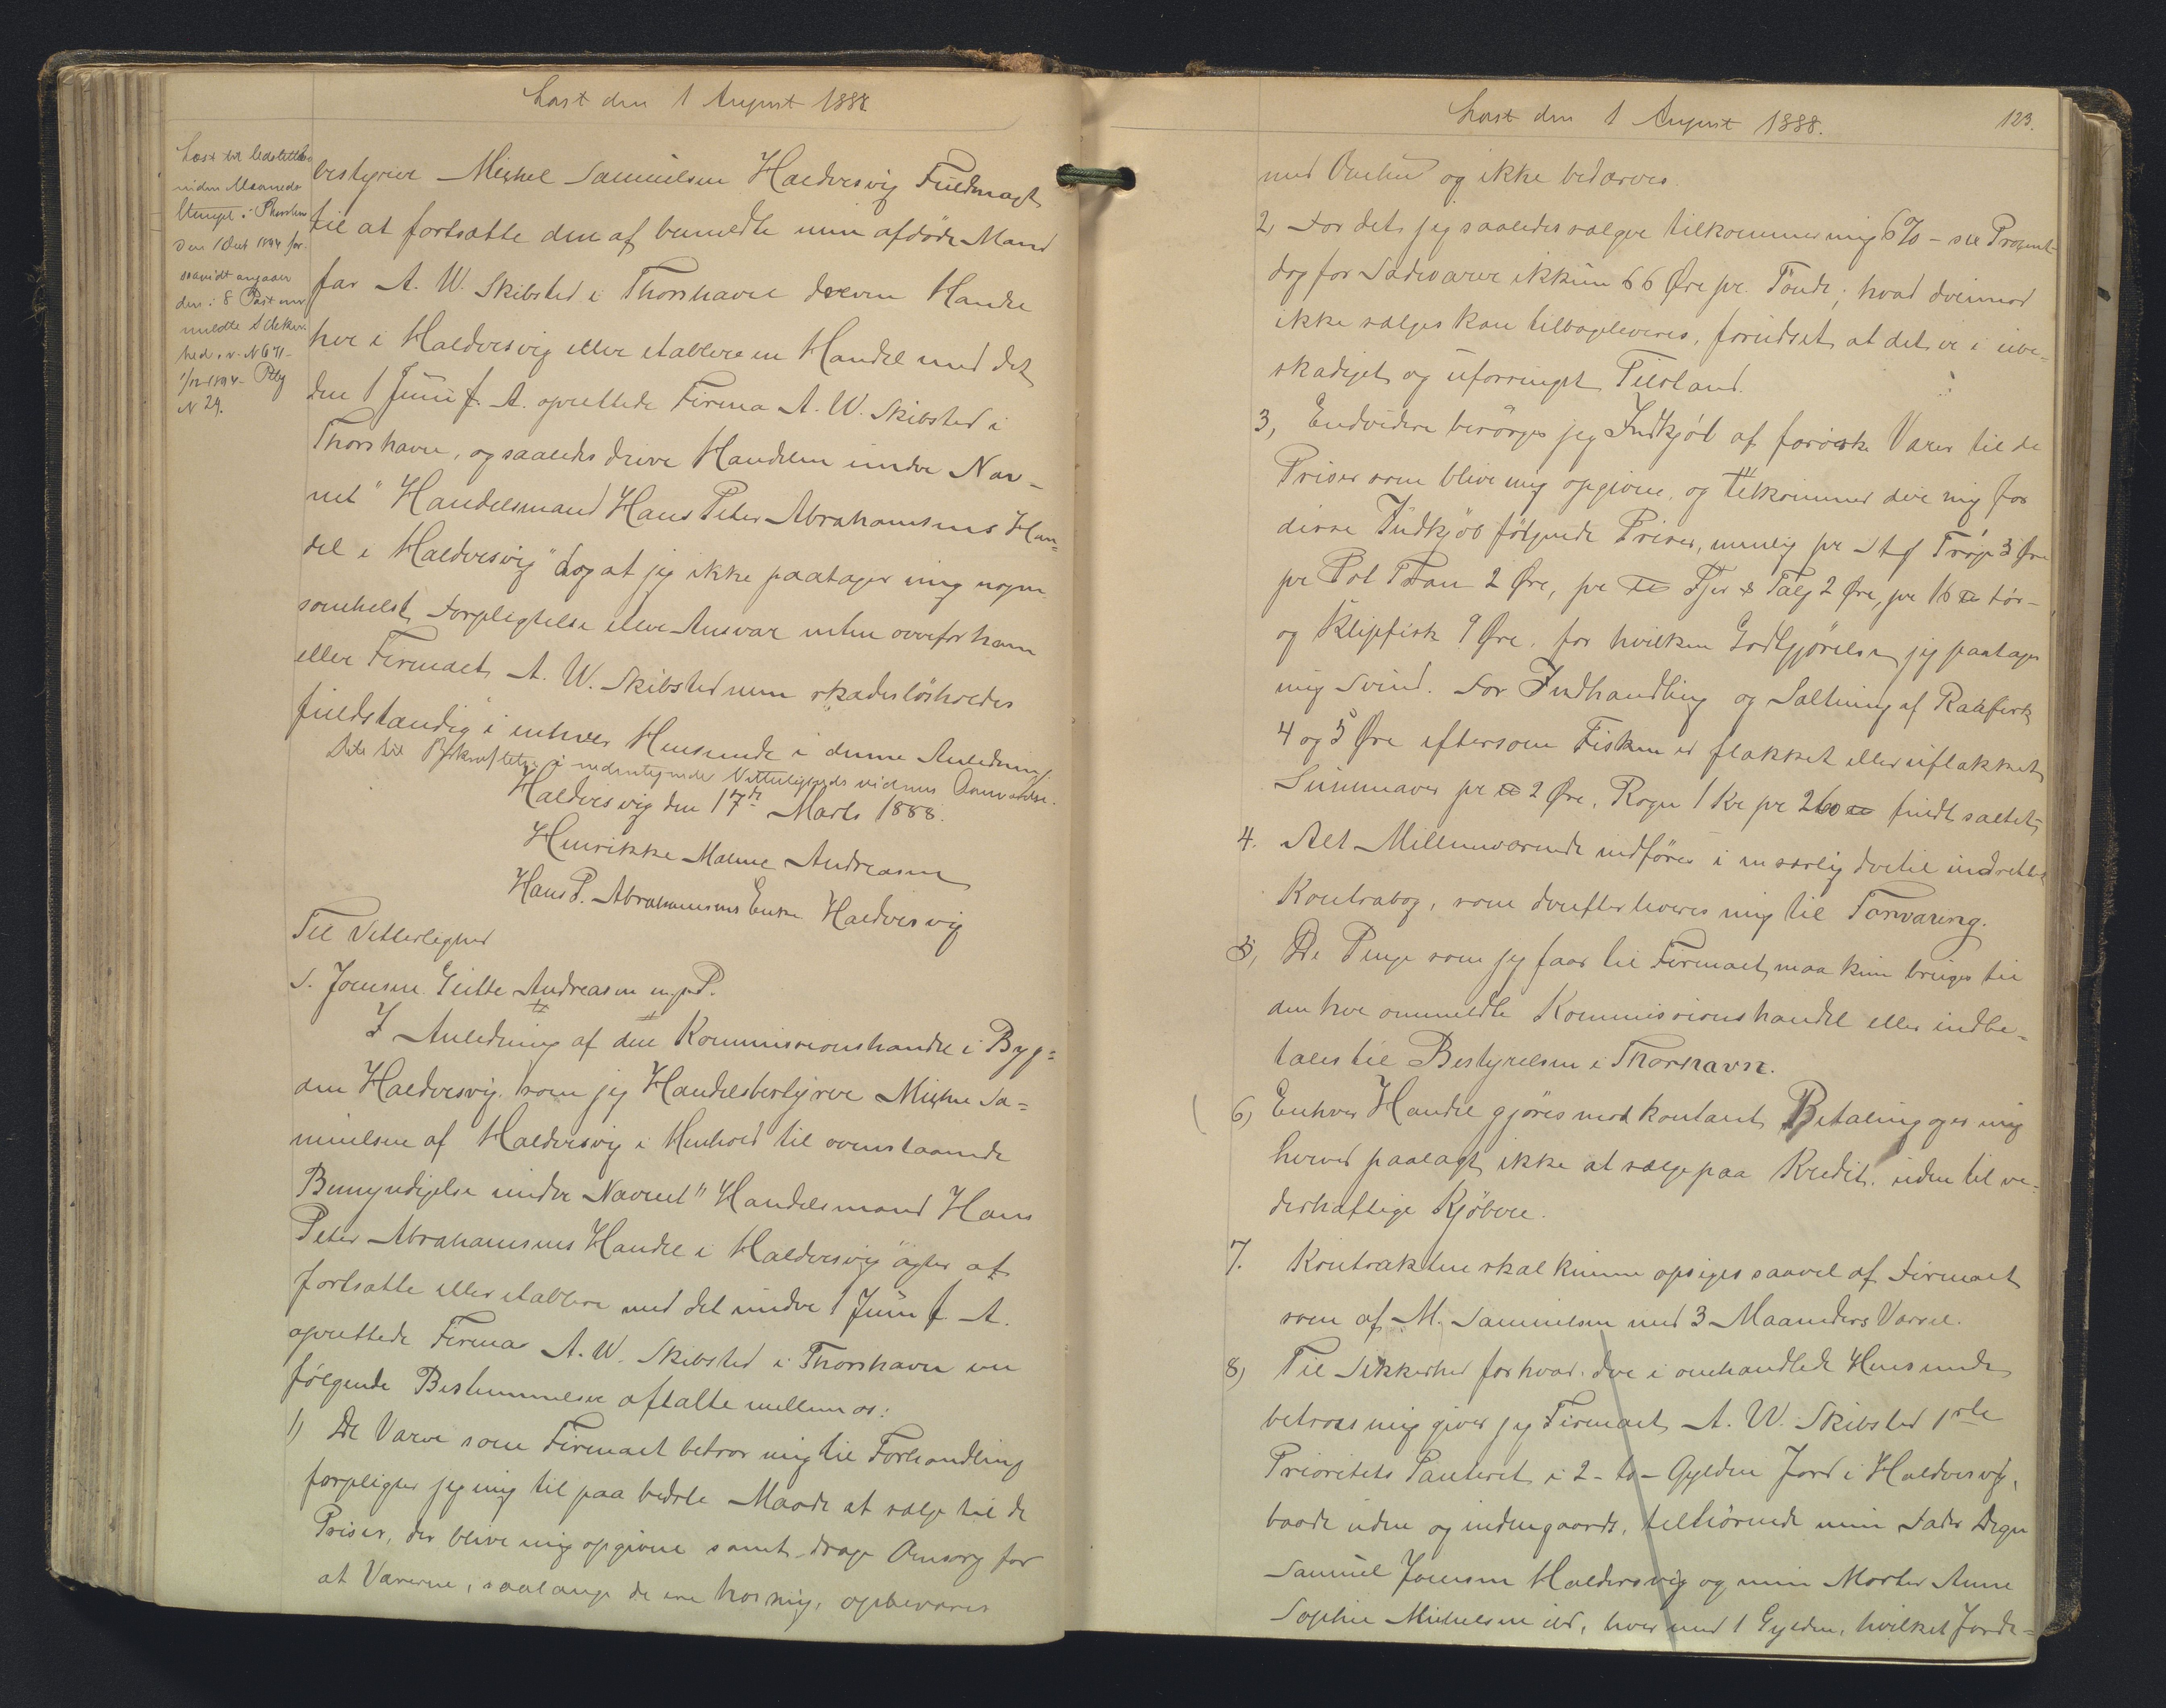 Læst den 1 August 1888
Læst til Udslettelse
inden Maaneds
Stempel i Thorshavn
den 1 Oct 1894 for
saavidt angaaer
den i 8 Post om
meldte Sikker
hed. v. N 671
1/10 1894 - Ptbg
N 29.
bestyrer Michel Samuelsen Haldersvig Fuldmagt
til at fortsætte den af bemeldte min afdøde Mand
for A. W. Skibsted i Thorshavn drevne Handel
her i Haldersvig eller etablere en Handel med det
den 1 Juni f. A. oprettede Firma A. W. Skibsted i
Thorshavn, og saaledes drive Handelen under Nav-
net "Handelsmand Hans Peter Abrahamsens Han-
del i Haldersvig" dog at jeg ikke paatager mig nogen
somhelst Forpligtelse eller Ansvar enten overfor ham
eller Firmaet A. W. Skibsted men skadesløsholdes
fuldstændig i enhver Henseende i denne Anledning.
Dette til Bekræftelse i nedentegnede Vitterlighedsvidners Overværelse.
Haldersvig den 17de Marts 1888.
Henrikke Malene Andreasen
Hans P. Abrahamsens Enke Haldersvig
Til Vitterlighed
S. Joensen Gutte Andreasen m. p. P.
I Anledning af den Kommissionshandel i Byg=
den Haldersvig som jeg Handelsbestyrer Michel Sa=
muelsen af Haldersvig i Henhold til ovenstaaende
Bemyndigelse under Navnet "Handelsmand Hans
Peter Abrahamsens Handel i Haldersvig" agter at
fortsætte eller etablere med det under 1 Juni f. A.
oprettede Firma A. W. Skibsted i Thorshavn ere
følgende Bestemmelser aftalte mellem os:
1) De Varer som Firmaet betror mig til Forhandling
forpligter jeg mig til paa bedste Maade at sælge til de
Priser, der blive mig opgivne samt drage Omsorg for
at Varerne, saalænge de ere hos mig, opbevares
Læst den 1 August 1888.
123.
med Omhu og ikke bedærves.
2, For det jeg saaledes sælger tilkommer mig 6% - sex Procent
dog for Sædevarer ikkun 66 Øre pr. Tønde; hvad derimod
ikke sælges kan tilbageleveres, forudsat at det er i ube-
skadiget og uforringet Tilstand.
3, Endvidere besørger jeg Indkjøb af færøiske Varer til de
Priser som blive mig opgivne, og tilkommer der mig for
disse Indkjøb følgende Priser, nemlig pr Stk Trøje 3 Øre
pr Pot Tran 2 Øre, pr ℔ Fjer & Talg 2 Øre, pr 16 ℔ tør-
og Klipfisk 9 Øre, for hvilken Godtgjørelse jeg paatager
mig Svind. For Indhandling og Saltning af Raafisk
4 og 5 Øre eftersom Fisken er flækket eller uflækket
Sundmaver pr ℔ 2 Øre, Rogn 1 Kr pr 260 ℔ fuldt saltet
4. Alt Mellemværende indføres i en særlig dertil indrettet
Kontrabog, som derefter leveres mig til Forvaring.
5, De Penge som jeg faar til Firmaet, maa kun bruges til
den her ommeldte Kommissionshandel eller indbe-
tales til Bestyrelsen i Thorshavn.
6, Enhver Handel gjøres mod kontant Betaling og er mig
herved paalagt ikke at sælge paa Kredit, uden til ve-
derhæftige Kjøbere.
7. Kontrakten skal kunne opsiges saavel af Firmaet
som af M. Samuelsen med 3 Maaneders Varsel.
8) Til Sikkerhed for hvad der i omhandlede Henseende
betroes mig giver jeg Firmaet A. W. Skibsted 1ste
Prioritets Panteret i 2 - to - Gylden Jord i Haldersvig,
baade uden og indengaards, tilhørende min Fader Degn
Samuel Joensen Haldersvig og min Moder Anne
Sophie Michelsen ibd, hver med 1 Gylden, hvilket Jorde=